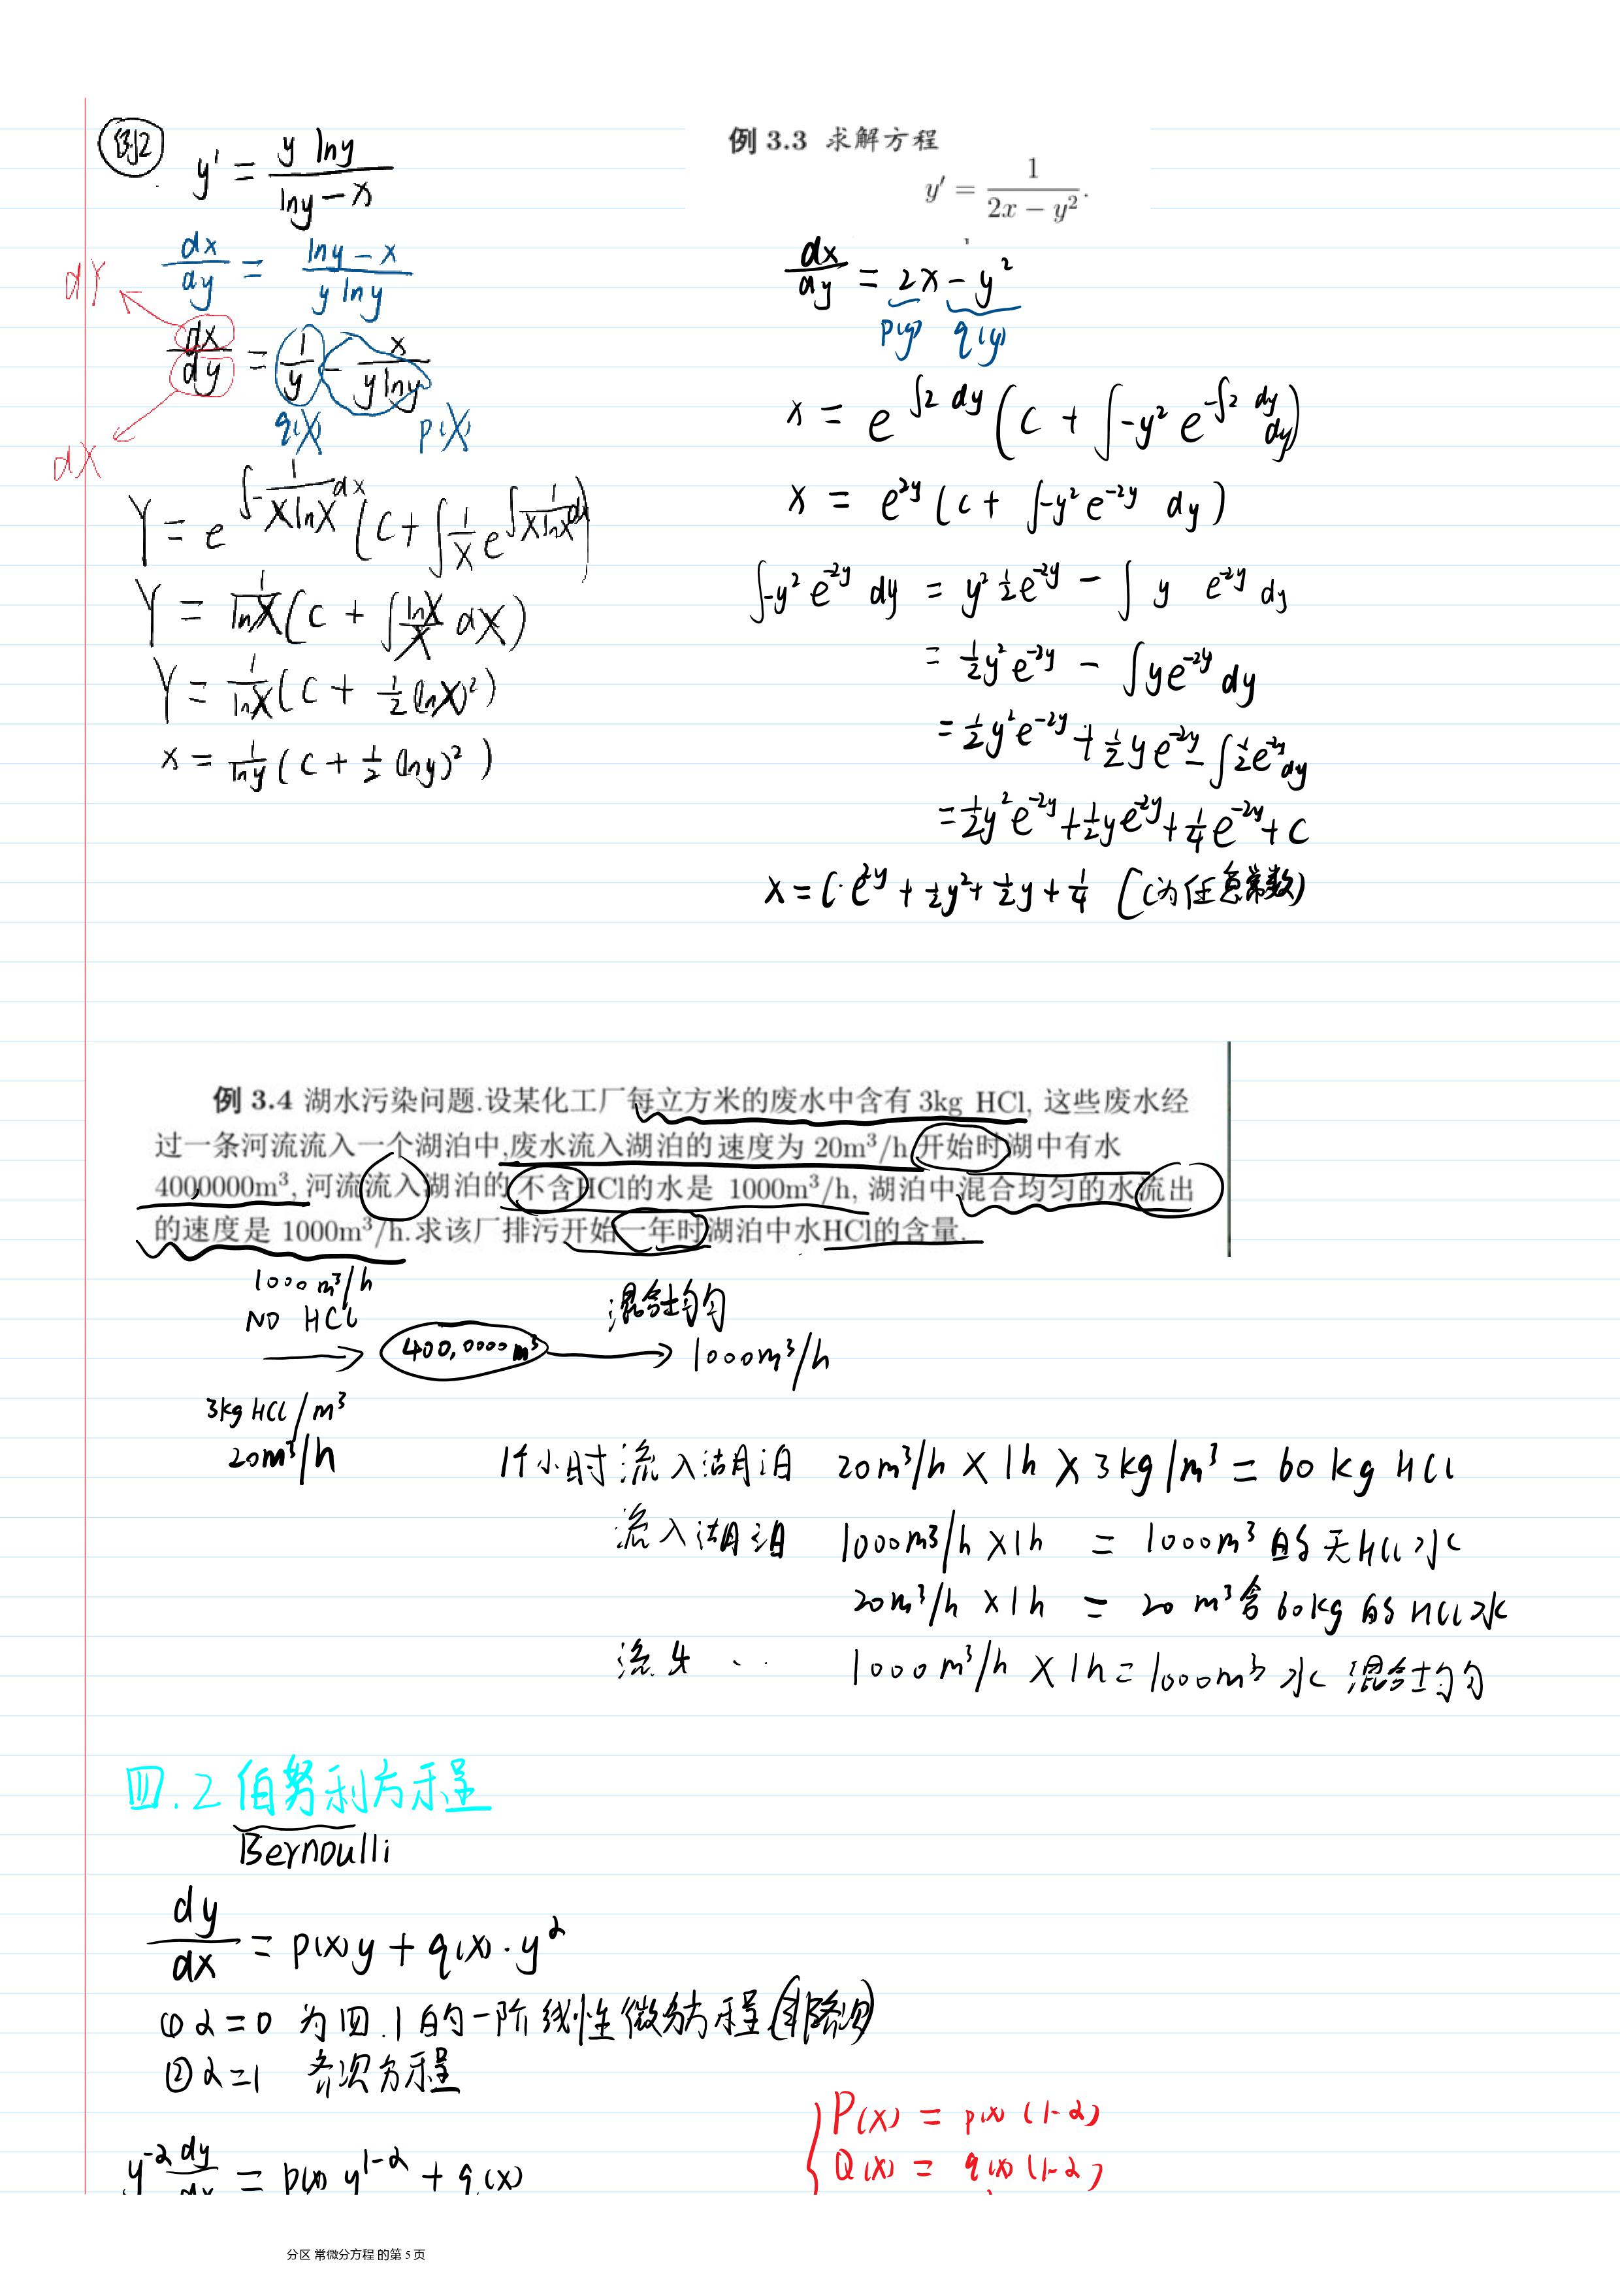 例2
y' = y ln y / (ln y − x)
dx/dy = (ln y − x) / (y ln y)
dY
dx/dy = 1/y − x/(y ln y)
q(X) p(X)
dX
Y = e^{∫−1/(X ln X) dx} (C + ∫ 1/X e^{∫ 1/(X ln X) dx})
Y = 1/ln X (C + ∫ ln X / X dX)
Y = 1/ln X (C + 1/2 (ln X)²)
x = 1/ln y (C + 1/2 (ln y)²)
例 3.3 求解方程
y′ = 1/(2x − y²).
dx/dy = 2x − y²
p(y) q(y)
x = e^{∫2 dy} (C + ∫−y² e^{−∫2 dy} dy)
x = e^{2y} (C + ∫−y² e^{−2y} dy)
∫−y² e^{−2y} dy = y² 1/2 e^{−2y} − ∫ y e^{−2y} dy
= 1/2 y² e^{−2y} − ∫ y e^{−2y} dy
= 1/2 y² e^{−2y} + 1/2 y e^{−2y} − ∫ 1/2 e^{−2y} dy
= 1/2 y² e^{−2y} + 1/2 y e^{−2y} + 1/4 e^{−2y} + C
x = C·e^{2y} + 1/2 y² + 1/2 y + 1/4 (C为任意常数)
例 3.4 湖水污染问题.设某化工厂每立方米的废水中含有 3kg HCl, 这些废水经
过一条河流流入一个湖泊中,废水流入湖泊的速度为 20m³/h.开始时湖中有水
4000000m³, 河流流入湖泊的不含HCl的水是 1000m³/h, 湖泊中混合均匀的水流出
的速度是 1000m³/h.求该厂排污开始一年时湖泊中水HCl的含量.
1000 m³/h
NO HCl
混合均匀
400,0000 m³
1000m³/h
3kg HCl/m³
20m³/h
1个小时流入湖泊 20m³/h × 1h × 3kg/m³ = 60 kg HCl
流入湖泊 1000m³/h × 1h = 1000m³ 的无HCl水
20m³/h × 1h = 20 m³ 含 60kg 的 HCl 水
流失 .. 1000m³/h × 1h = 1000m³ 水 混合均匀
四.2 伯努利方程
Bernoulli
dy/dx = p(x) y + q(x)·y^α
① α=0 为四.1 的一阶线性微分方程(非齐次)
② α=1 齐次方程
y^{−α} dy/dx = p(x) y^{1−α} + q(x)
P(x) = p(x) (1−α)
Q(x) = q(x) (1−α)
分区 常微分方程 的第 5 页